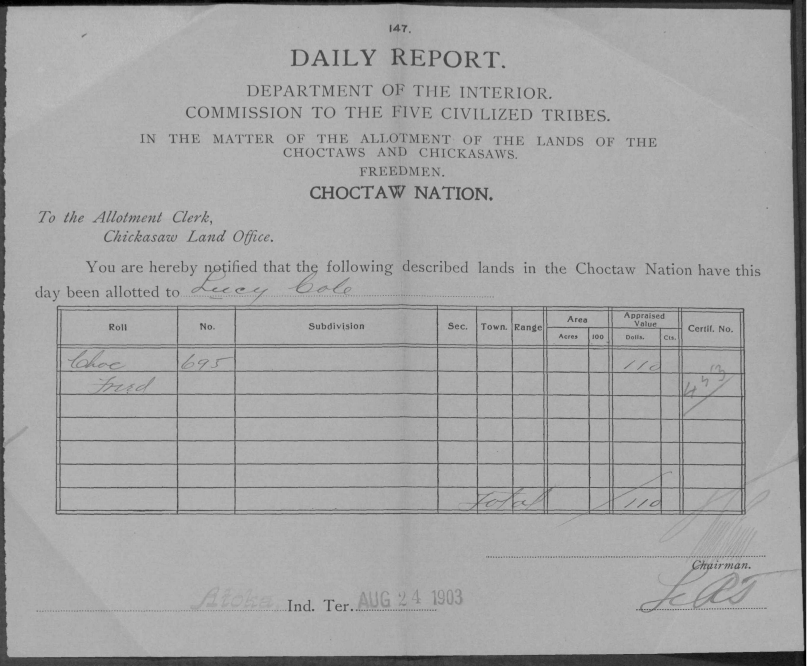 147.
DAILY REPORT.
DEPARTMENT OF THE INTERIOR.
COMMISSION TO THE FIVE CIVILIZED TRIBES.
IN THE MATTER OF THE ALLOTMENT OF THE LANDS OF THE
CHOCTAWS AND CHICKASAWS.
FREEDMEN.
CHOCTAW NATION.
To the Allotment Clerk,
Chickasaw Land Office.
You are hereby notified that the following described lands in the Choctaw Nation have this
day been allotted to Lucy Cole
Roll No. Subdivision Sec. Town. Range Area Acres 100 Appraised Value Dolls. Cts. Certif. No.
Choc 695 110
Freed
Total 110
Chairman.
Atoka, Ind. Ter. AUG 24 1903